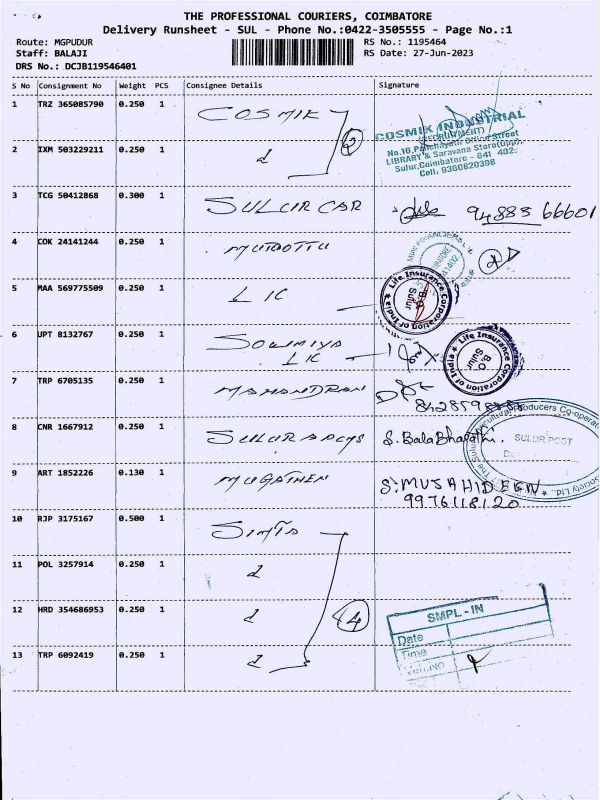 THE PROFESSIONAL COURIERS, COIMBATORE
Delivery Runsheet - SUL - Phone No.:0422-3505555 - Page No.:1
Route: MGPUDUR RS No.: 1195464
Staff: BALAJI RS Date: 27-Jun-2023
DRS No.: DCJB119546401
S No Consignment No Weight PCS Consignee Details Signature
1 TRZ 365085790 0.250 1 COSMIK
COSMIK INDUSTRIAL
(RECRUITMENT)
No.16, Panchayat Office Street
LIBRARY & Saravana Store(Opp),
Sulur, Coimbatore - 641 402.
Cell: 9360820398
2 IXM 503229211 0.250 1 d 2
3 TCG 50412868 0.300 1 SULUR CAR 94885 66601
4 COK 24141244 0.250 1 MUTOOTU
5 MAA 569775509 0.250 1 LIC
Life Insurance Corporation of India
B.O.
Sulur
6 UPT 8132767 0.250 1 SOWMIYA
LIC
Life Insurance Corporation of India
B.O.
Sulur
7 TRP 6705135 0.250 1 MAHANDRAN
8 CNR 1667912 0.250 1 S. BalaBharathi.
SULUR POST
9 ART 1852226 0.130 1 S. MUSAHIDEEN
9976118120
10 RJP 3175167 0.500 1 SIMTA
11 POL 3257914 0.250 1 d
12 HRD 354686953 0.250 1 d 4
SMPL - IN
Date
Time
13 TRP 6092419 0.250 1 d